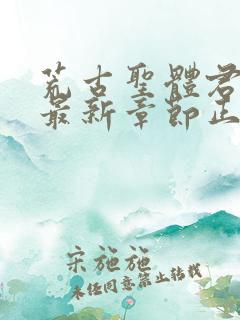 荒古聖體君
最新章節正
宋施施
未经同意禁止转载